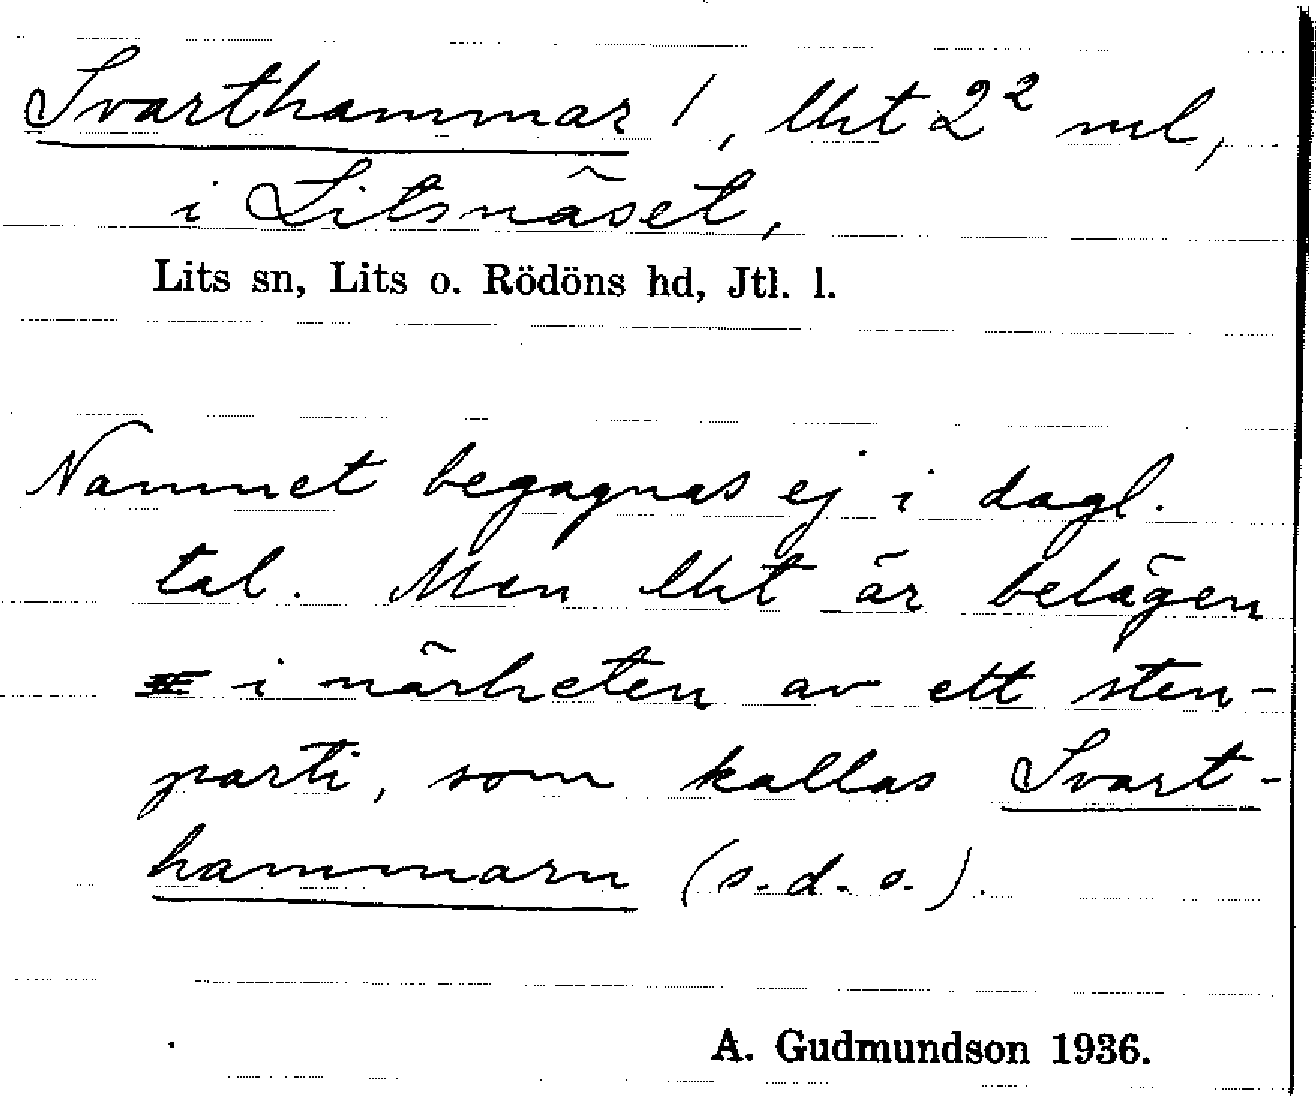 Svarthammar 1, lht 2² ml,
i Litsnäset,
Lits sn, Lits o. Rödöns hd, Jtl. l.
Namnet begagnas ej i dagl.
tal. Men lht är belägen
i närheten av ett sten-
parti, som kallas Svart-
hammarn (s.d.o.).
A. Gudmundson 1936.